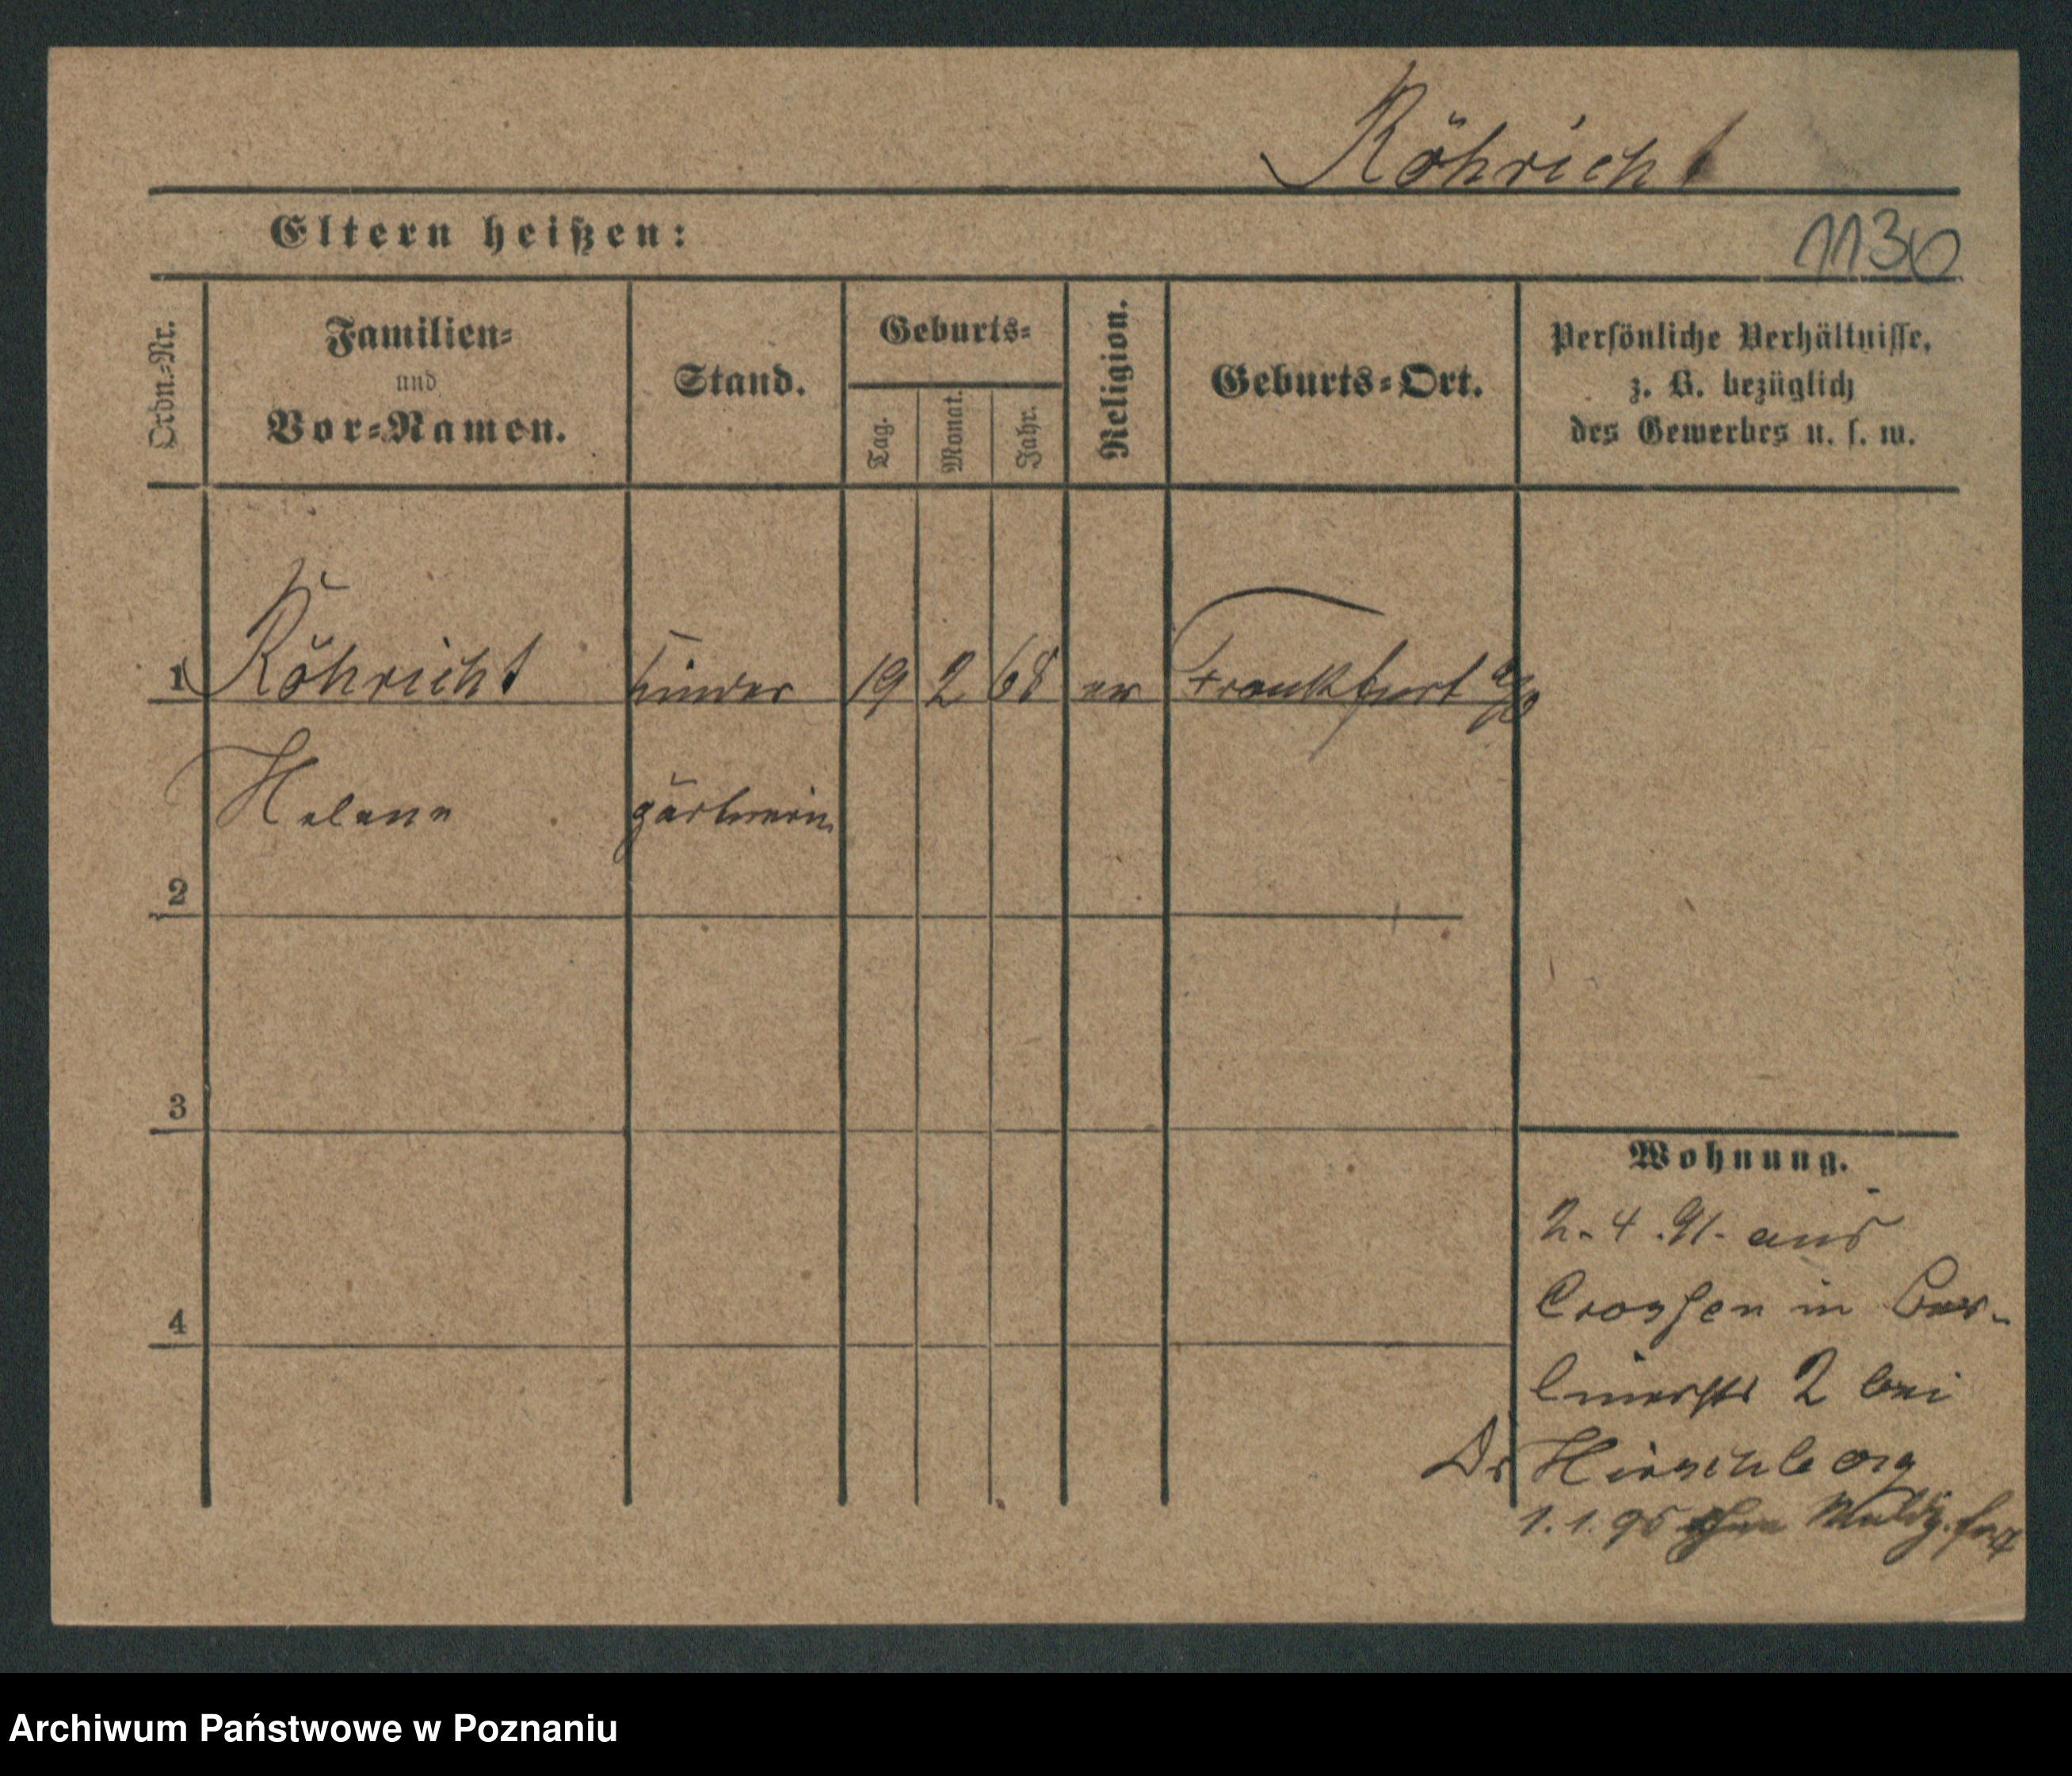 Röhricht
Eltern heißen:
1130
Ordn.-Nr.
Familien-
und
Vor-Namen.
Stand.
Geburts-
Tag.
Monat.
Jahr.
Religion.
Geburts-Ort.
Persönliche Verhältnisse,
z. B. bezüglich
des Gewerbes u. s. w.
1 Röhricht Kinder 19 2 68 ev Frankfurt a/O
Helene gärtnerin
2
3
4
Wohnung.
2.4.91. aus
Crossen in Ber-
linerstr 2 bei
Dr Hirschberg
1.1.95 ohne Meldg. fort
Archiwum Państwowe w Poznaniu